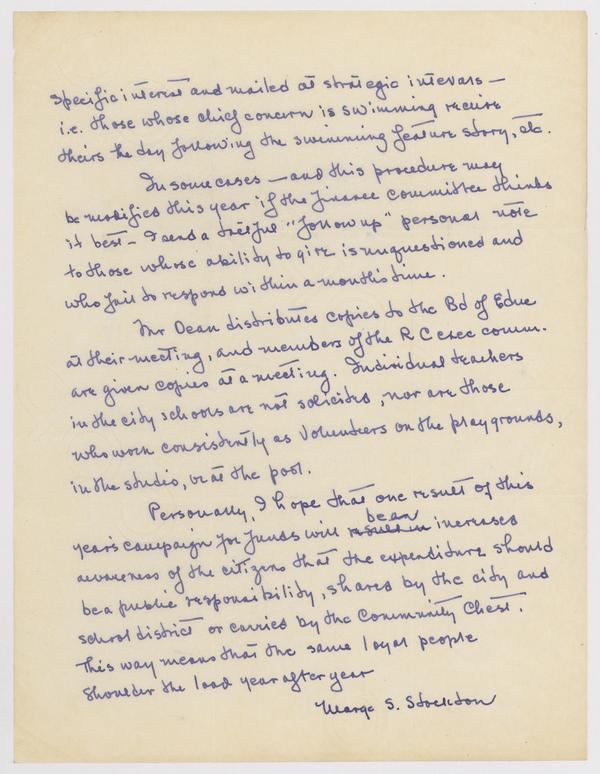 specific interest and mailed at strategic intevars —
i.e. those whose chief concern is swimming receive
theirs the day following the swimming feature story, etc.
In some cases — and this procedure may
be modified this year if the finance committee thinks
it best — I send a "follow up" personal note
to those whose ability to give is unquestioned and
who fail to respond within a month's time.
Mr Dean distributes copies to the Bd of Educ
at their meeting, and members of the R C exec comm.
are given copies at a meeting. Individual teachers
in the city schools are not solicited, nor are those
who work consistently as volunteers on the playgrounds,
in the studio, or at the pool.
Personally, I hope that one result of this
year's campaign for funds will result in be an increased
awareness of the citizens that the expenditure should
be a public responsibility, shared by the city and
school district or carried by the Community Chest.
This way means that the same loyal people
shoulder the load year after year
Marge S. Stockton